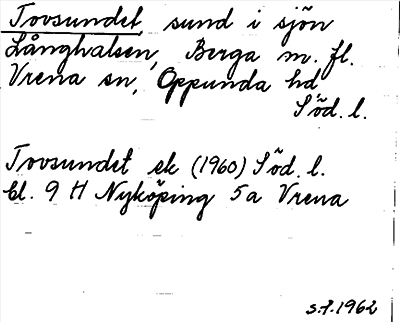 Tovsundet, sund i sjön
Långhalsen, Berga m. fl.
Vrena sn, Oppunda hd
Söd. l.
Tovsundet ek (1960) Söd. l.
bl. 9 H Nyköping 5a Vrena
S.P. 1962